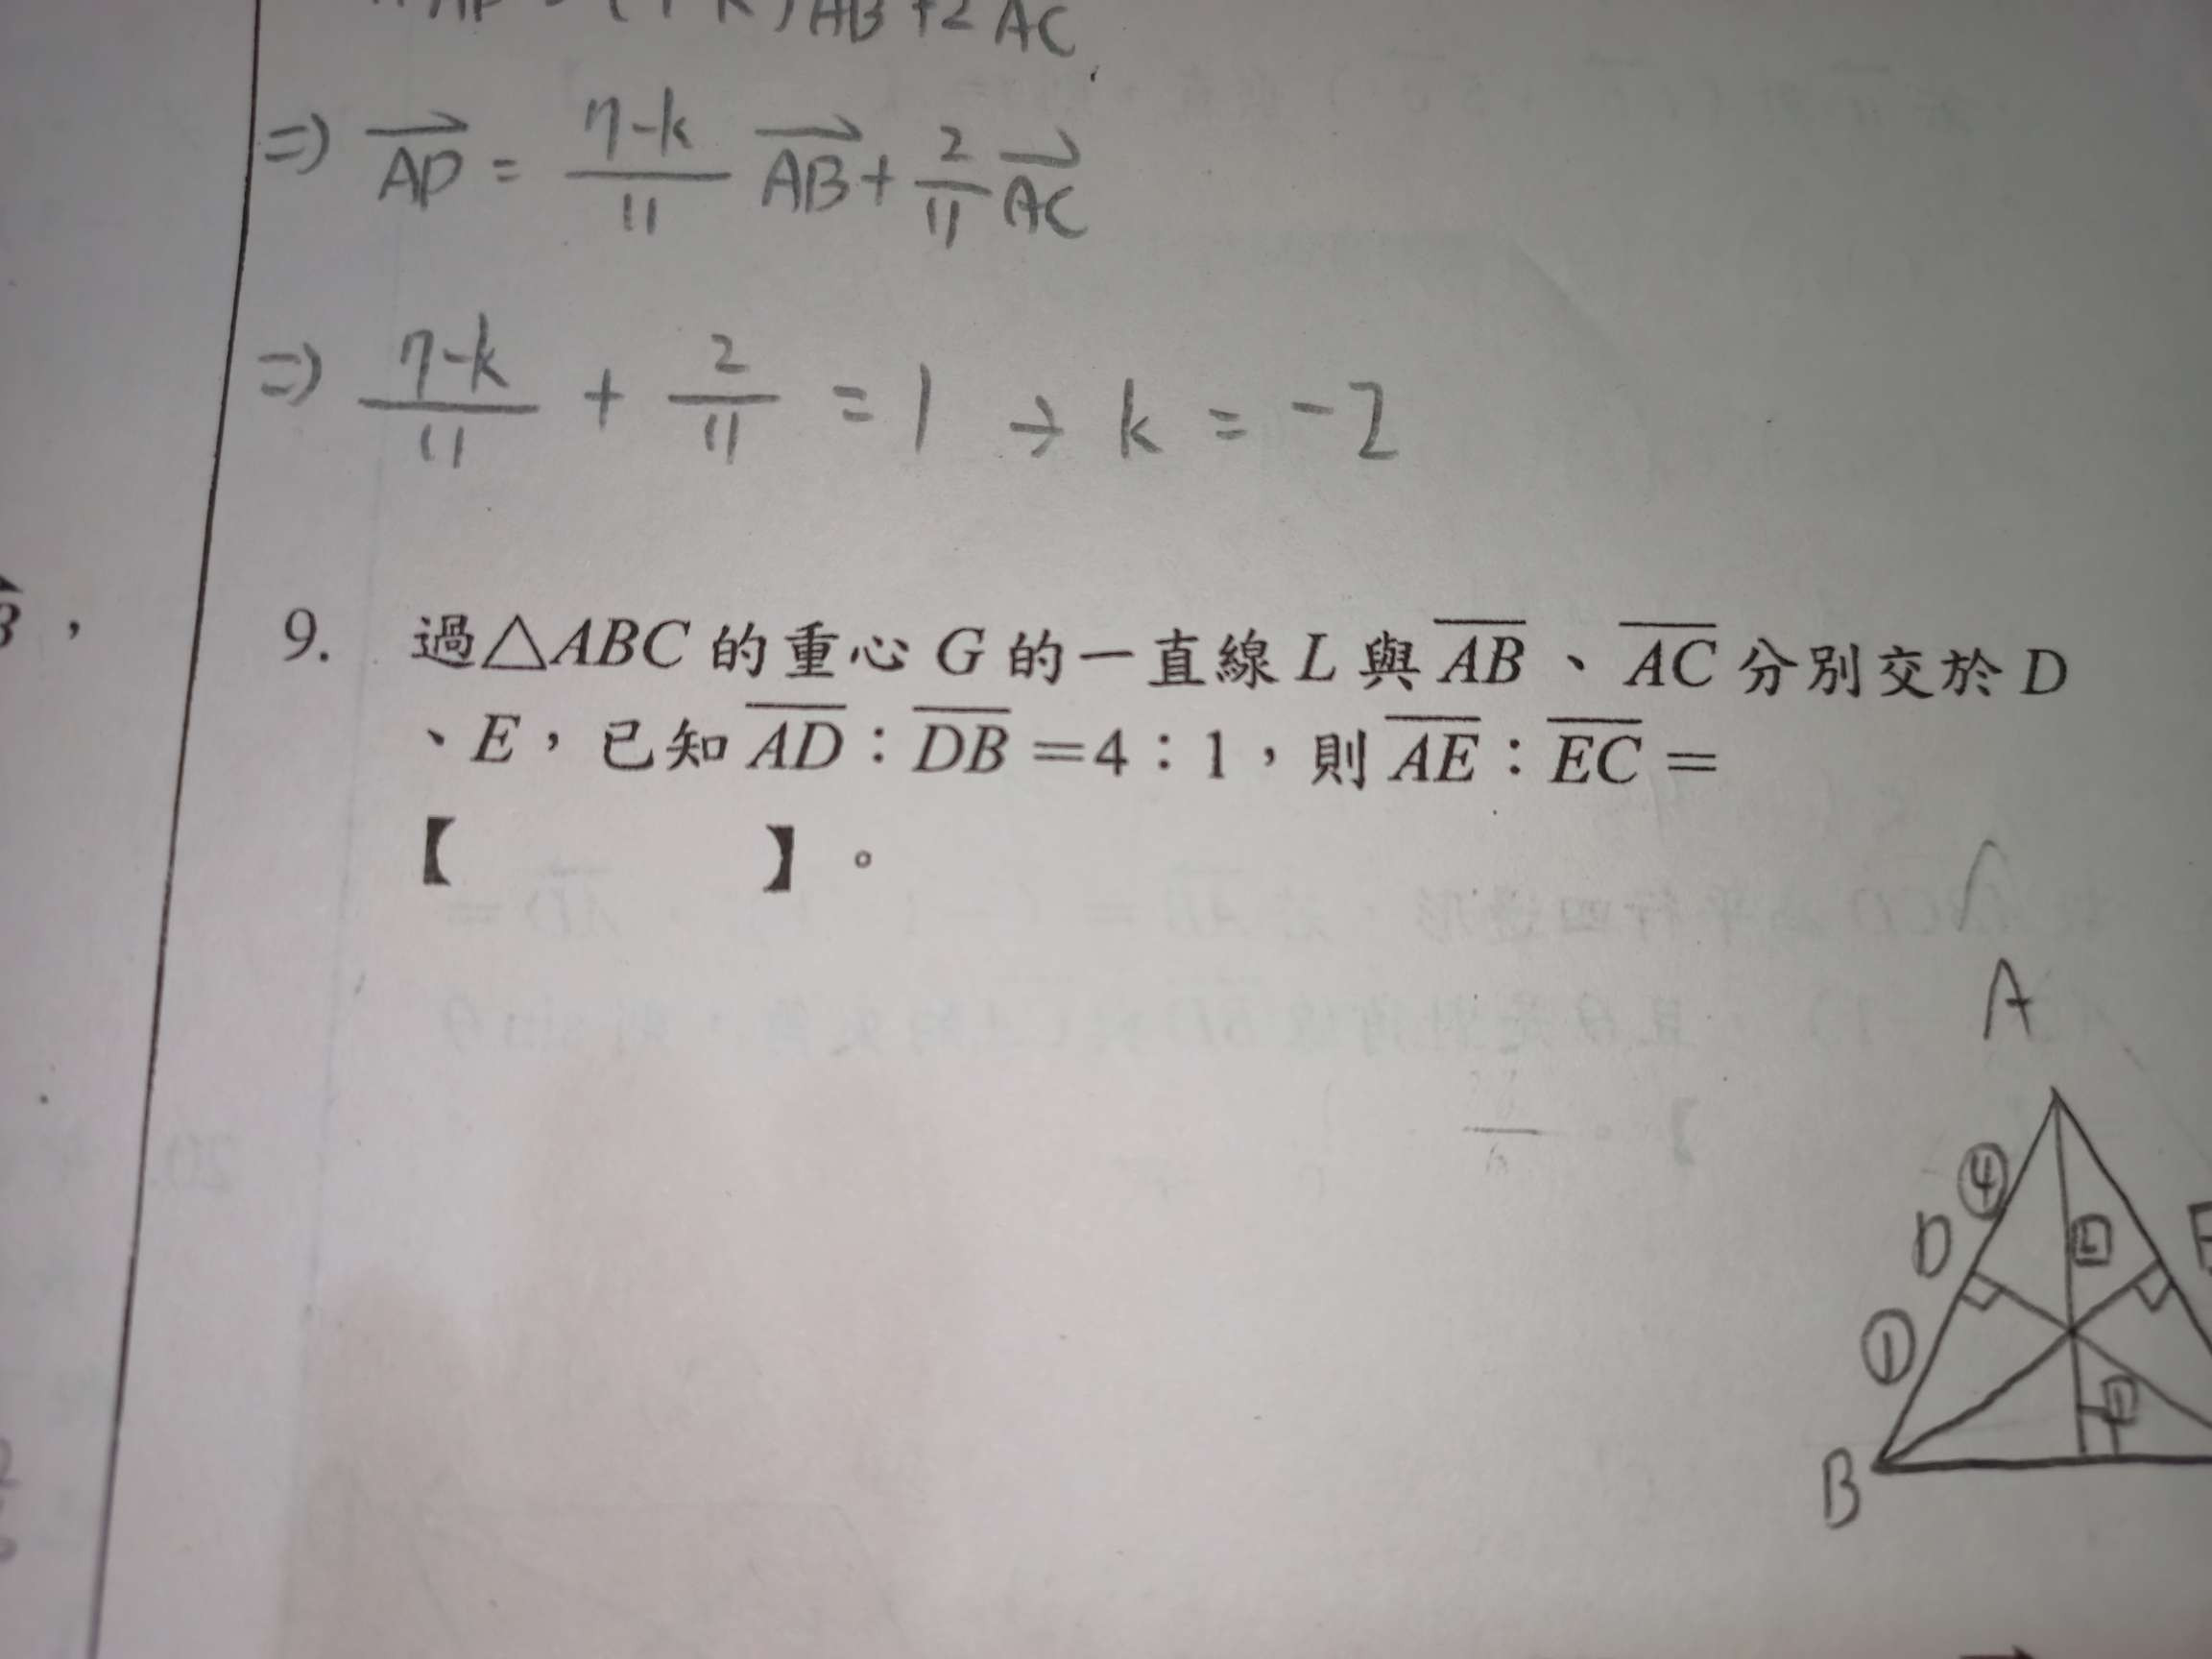 AB+2AC
⇒ AP = 7-k/11 AB + 2/11 AC
⇒ 7-k/11 + 2/11 = 1 → k = -2
9. 過△ABC的重心G的一直線L與AB、AC分別交於D
、E，已知AD：DB=4：1，則AE：EC=
【 】。
A
④
D
E
2
①
1
B